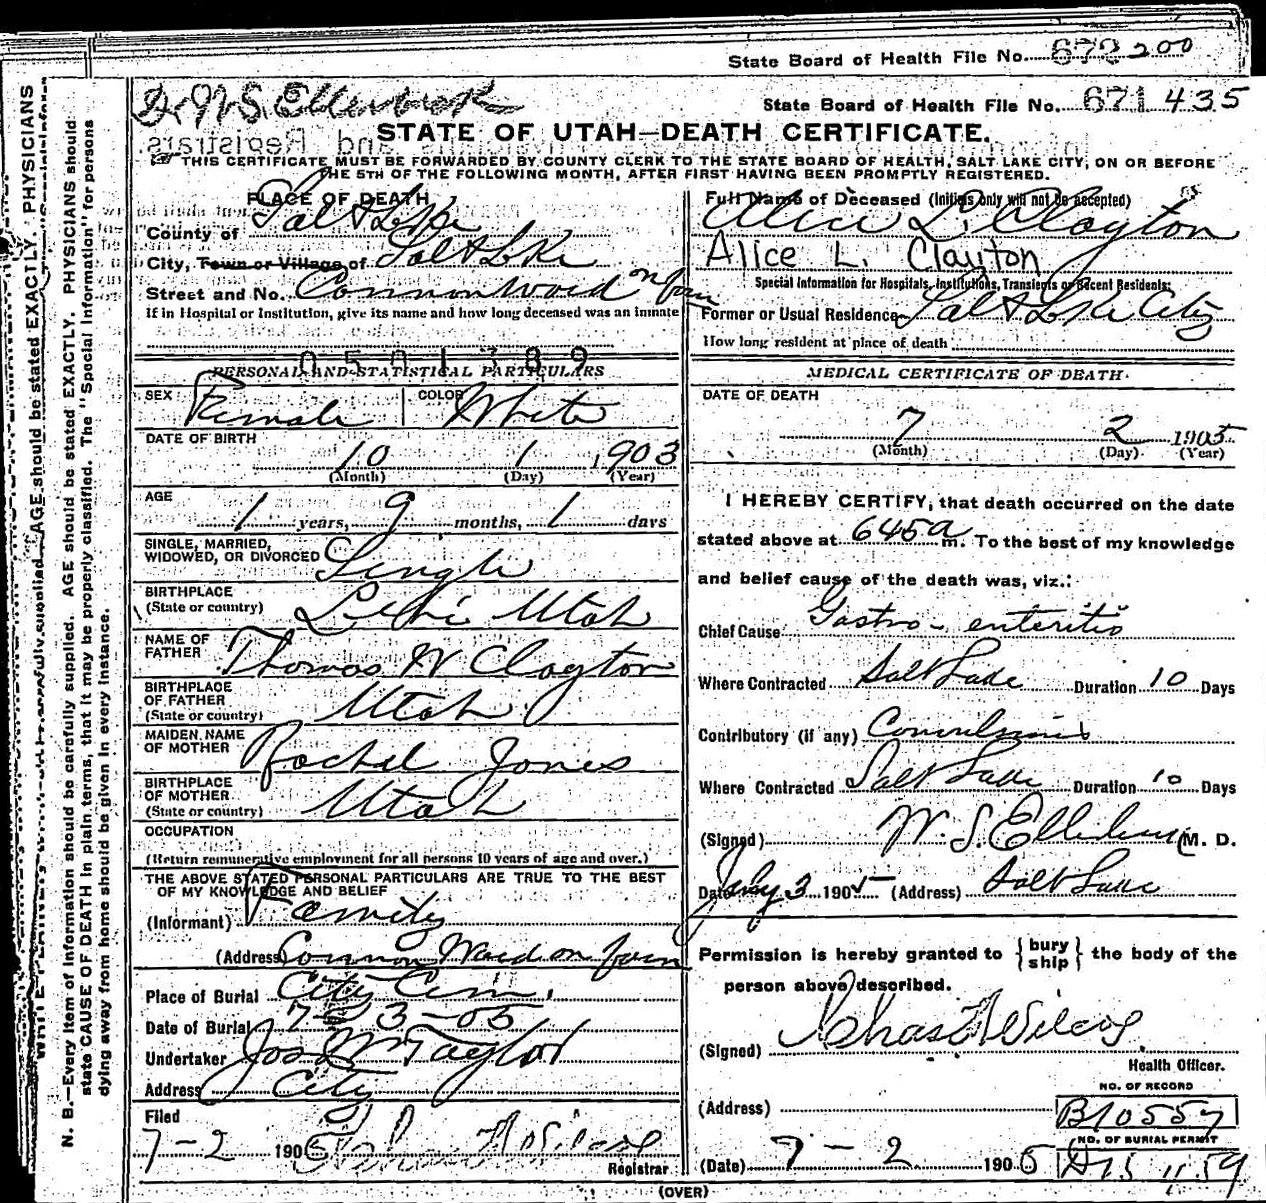 State Board of Health File No. 672 200
State Board of Health File No. 671 435
Dr W S Ellerbrock
STATE OF UTAH—DEATH CERTIFICATE.
THIS CERTIFICATE MUST BE FORWARDED BY COUNTY CLERK TO THE STATE BOARD OF HEALTH, SALT LAKE CITY, ON OR BEFORE
THE 5TH OF THE FOLLOWING MONTH, AFTER FIRST HAVING BEEN PROMPTLY REGISTERED.
PLACE OF DEATH
County of Salt Lke
City, Town or Village of Salt Lke
Street and No. Common Word on farm
If in Hospital or Institution, give its name and how long deceased was an inmate
0501389
PERSONAL AND STATISTICAL PARTICULARS
SEX Female COLOR White
DATE OF BIRTH
10 1 1903
(Month) (Day) (Year)
AGE
1 years, 9 months, 1 days
SINGLE, MARRIED,
WIDOWED, OR DIVORCED Single
BIRTHPLACE
(State or country) Lehi Utah
NAME OF
FATHER Thomas W Clayton
BIRTHPLACE
OF FATHER
(State or country) Utah
MAIDEN NAME
OF MOTHER Rachel Jones
BIRTHPLACE
OF MOTHER
(State or country) Utah
OCCUPATION
(Return remunerative employment for all persons 10 years of age and over.)
THE ABOVE STATED PERSONAL PARTICULARS ARE TRUE TO THE BEST
OF MY KNOWLEDGE AND BELIEF
(Informant) Family
(Address) Common Ward on farm
Place of Burial City Cem.
Date of Burial 7-3-05
Undertaker Jos Wm Taylor
Address City
Filed
7-2 1905 Chas F Wilcox
Registrar
Full Name of Deceased (Initials only will not be accepted)
Alice L. Clayton
Alice L. Clayton
Special Information for Hospitals, Institutions, Transients or Recent Residents:
Former or Usual Residence Salt Lke City
How long resident at place of death
MEDICAL CERTIFICATE OF DEATH
DATE OF DEATH
7 2 1905
(Month) (Day) (Year)
I HEREBY CERTIFY, that death occurred on the date
stated above at 645 a m. To the best of my knowledge
and belief cause of the death was, viz.:
Chief Cause Gastro-enteritis
Where Contracted Salt Lake Duration 10 Days
Contributory (if any) Convulsions
Where Contracted Salt Lake Duration 10 Days
(Signed) W. S. Ellerbrock M. D.
Date July 3 1905 (Address) Salt Lake
Permission is hereby granted to { bury
ship } the body of the
person above described.
(Signed) Chas F Wilcox
Health Officer.
(Address)
NO. OF RECORD
B10557
NO. OF BURIAL PERMIT
(Date) 7-2 1905
(OVER)
N. B.—Every item of information should be carefully supplied. AGE should be stated EXACTLY. PHYSICIANS should
state CAUSE OF DEATH in plain terms, that it may be properly classified. The "Special Information" for persons
dying away from home should be given in every instance.
AGE should be stated EXACTLY. PHYSICIANS